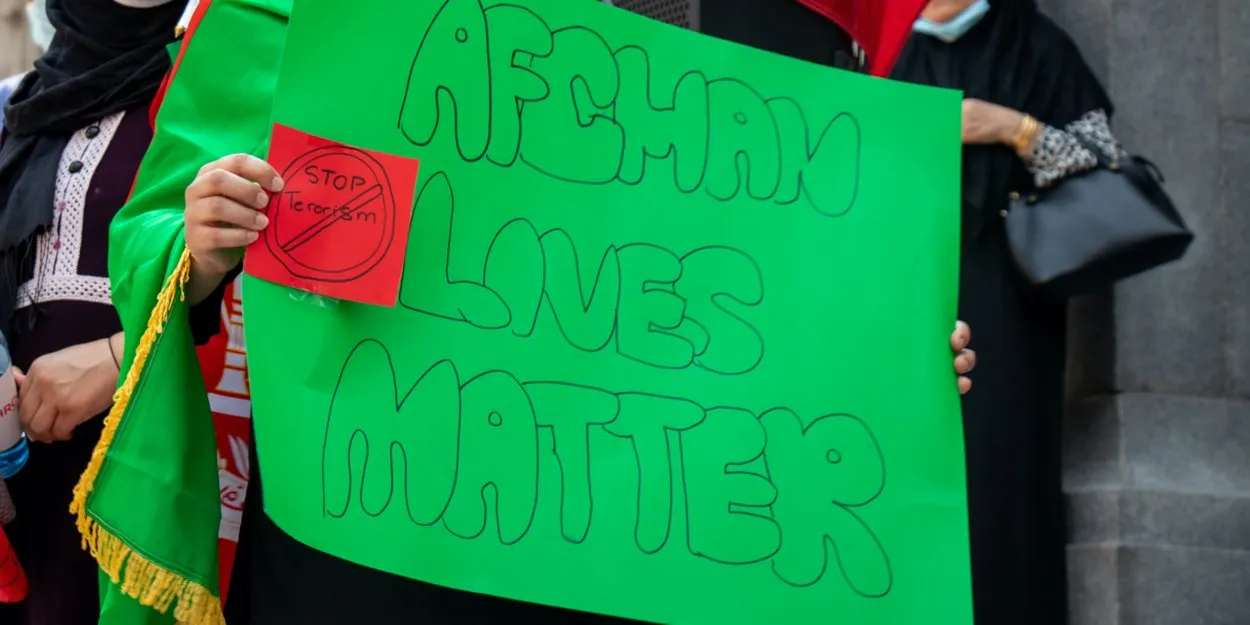 AFGHAN
LIVES
MATTER
STOP
Terorism